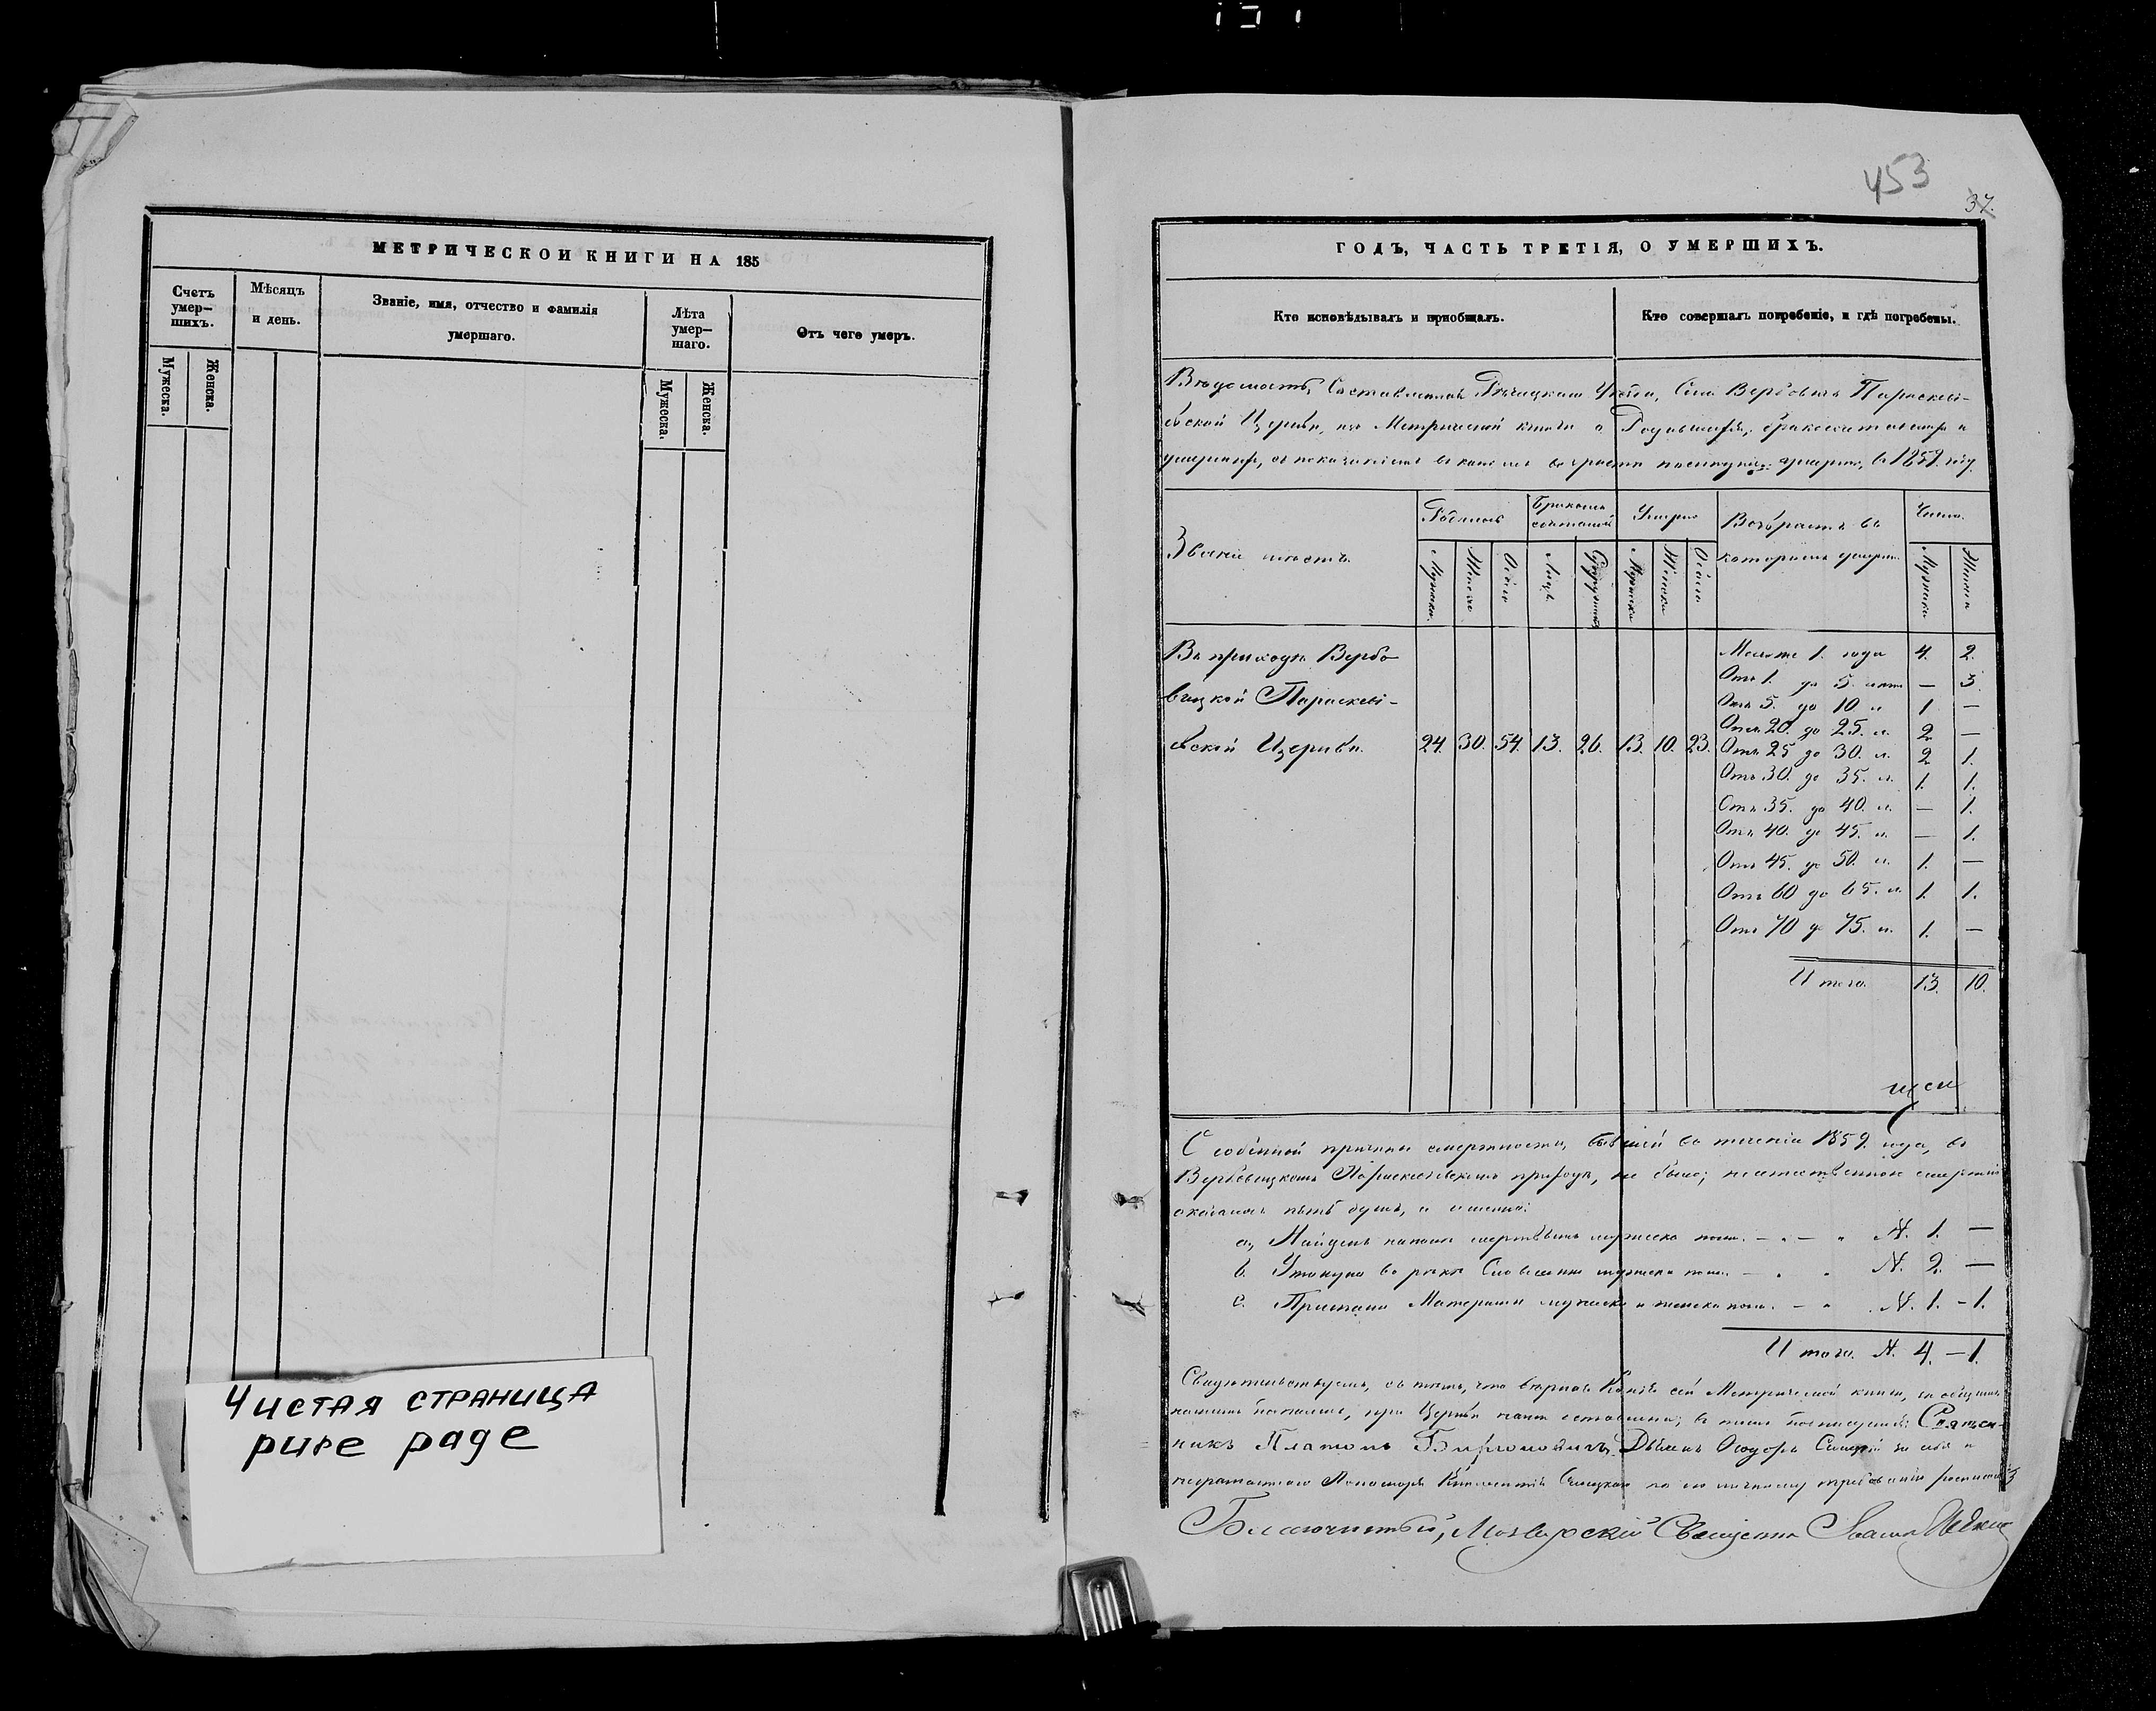 МЕТРИЧЕСКОЙ КНИГИ НА 185
Счетъ умер-
шихъ.
Мѣсяцъ
и день.
Званіе, имя, отчество и фамилія
умершаго.
Лѣта
умер-
шаго.
Отъ чего умеръ.
Мужеска.
Женска.
Мужеска.
Женска.
Чистая страница
pure page
453
37.
ГОДЪ, ЧАСТЬ ТРЕТІЯ, О УМЕРШИХЪ.
Кто исповѣдывалъ и пріобщалъ.
Кто совершалъ погребеніе, и гдѣ погребены.
Вѣдомость, Составленная Рѣчицкаго Уѣзда, Села Вербовичъ Параскеві-
евской Церкви, изъ Метрической книги о Родившихся, бракосочетавшихся и
умершихъ, съ показаніемъ въ какомъ возрастѣ кто умеръ, въ 1859. году.
Званіе мѣстъ.
Родилось
Бракомъ
сочетаній
Умерло
Возрастъ въ
которомъ умерли
Число.
Мужеска.
Женска
Обоего
Лицъ
Супружествъ
Мужеска
Женска
Обоего
Мужеска
Женска
Въ приходѣ Вербо-
вицкой Параскеві-
евской Церкви.
24. 30. 54. 13. 26. 13. 10. 23.
Менѣе 1. года 4. 2.
Отъ 1. до 5. лѣтъ — 3.
Отъ 5. до 10. л. 1 —
Отъ 20. до 25. л. 2 —
Отъ 25 до 30. л. 2 1.
Отъ 30. до 35. л. 1. 1.
Отъ 35. до 40. л. — 1.
Отъ 40. до 45. л. — 1.
Отъ 45. до 50. л. 1. —
Отъ 60 до 65. л. 1. 1.
Отъ 70 до 75. л. 1. —
Итого. 13. 10.
Особенной причины смертности, бывшей въ теченіи 1859. года, въ
Вербовицкомъ Параскевіевскомъ приходѣ, не было;
оказалось пять душъ, а именно:
а, Найденъ мертвымъ мужеска пола. — № 1. —
b. Утонуло въ рекѣ Словечнѣ мужеска пола. — № 2. —
c. Приспано Матерями мужеска и женска пола. — № 1. – 1.
Итого. № 4. – 1.
Свидѣтельствуемъ, въ томъ, что вѣрная Копія сей Метрической книги, за общимъ
нашимъ подписомъ, при Церкви нами оставлена; въ чемъ подписуемся: Священ-
никъ Платонъ Дьячекъ Ѳедоръ за себя и
неграмотнаго Пономаря по его личному
Благочинный, Мозырскій Священникъ Іоаннъ